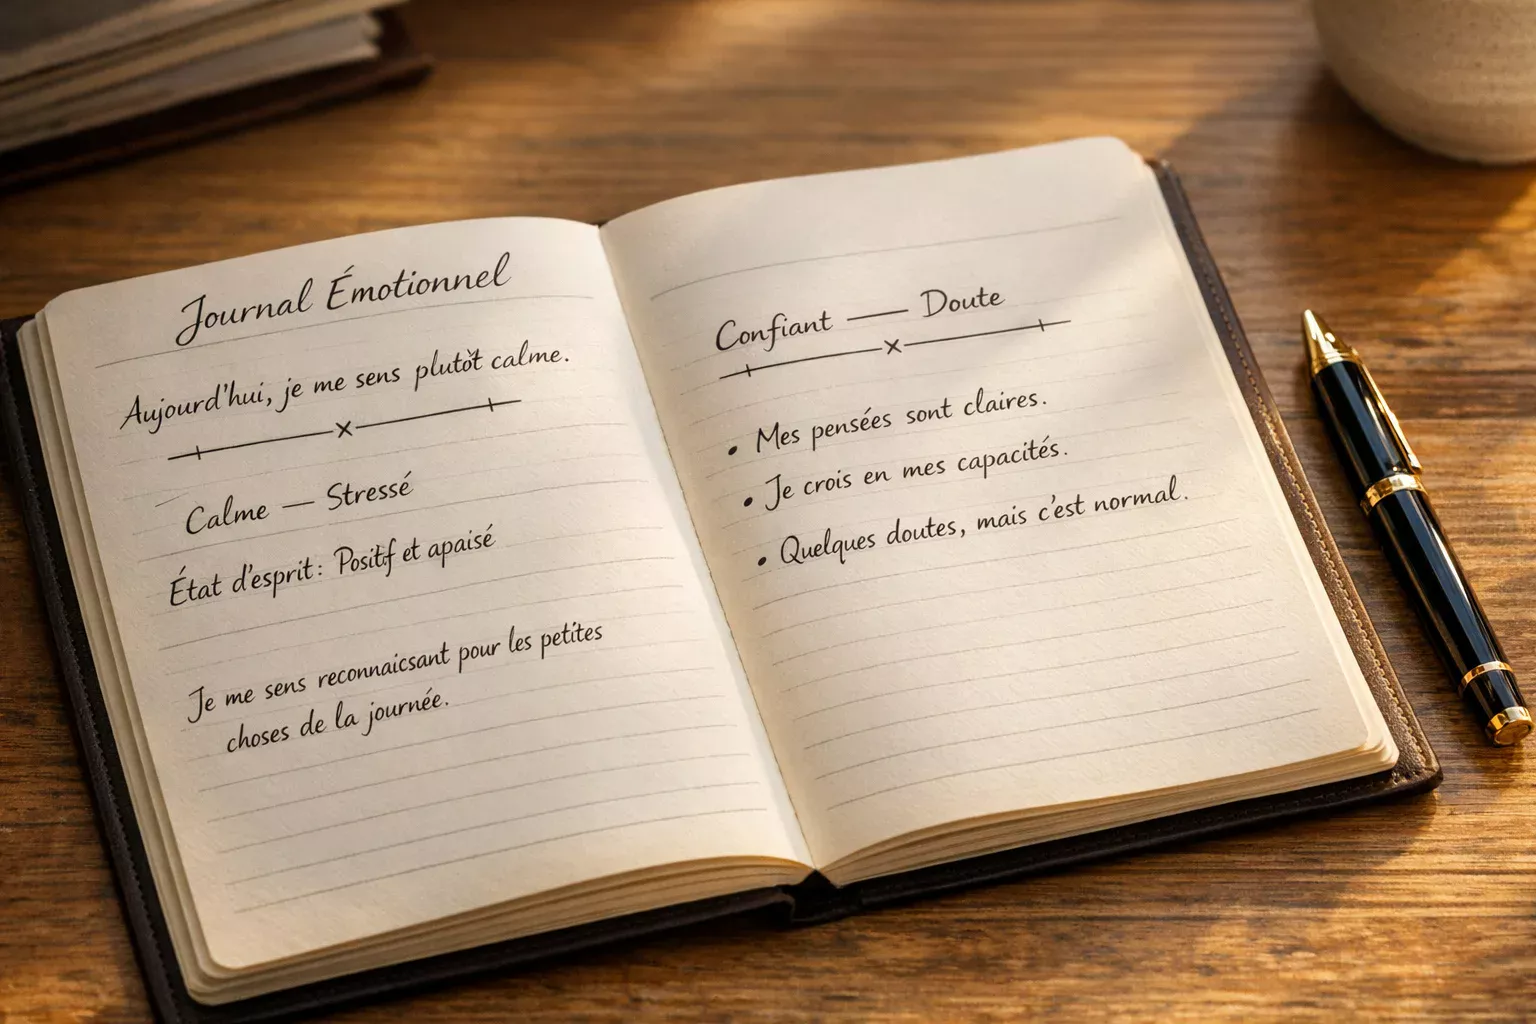 Journal Émotionnel
Aujourd'hui, je me sens plutôt calme.
Calme — Stressé
État d'esprit: Positif et apaisé
Je me sens reconnaicsant pour les petites
choses de la journée.
Confiant — Doute
• Mes pensées sont claires.
• Je crois en mes capacités.
• Quelques doutes, mais c'est normal.